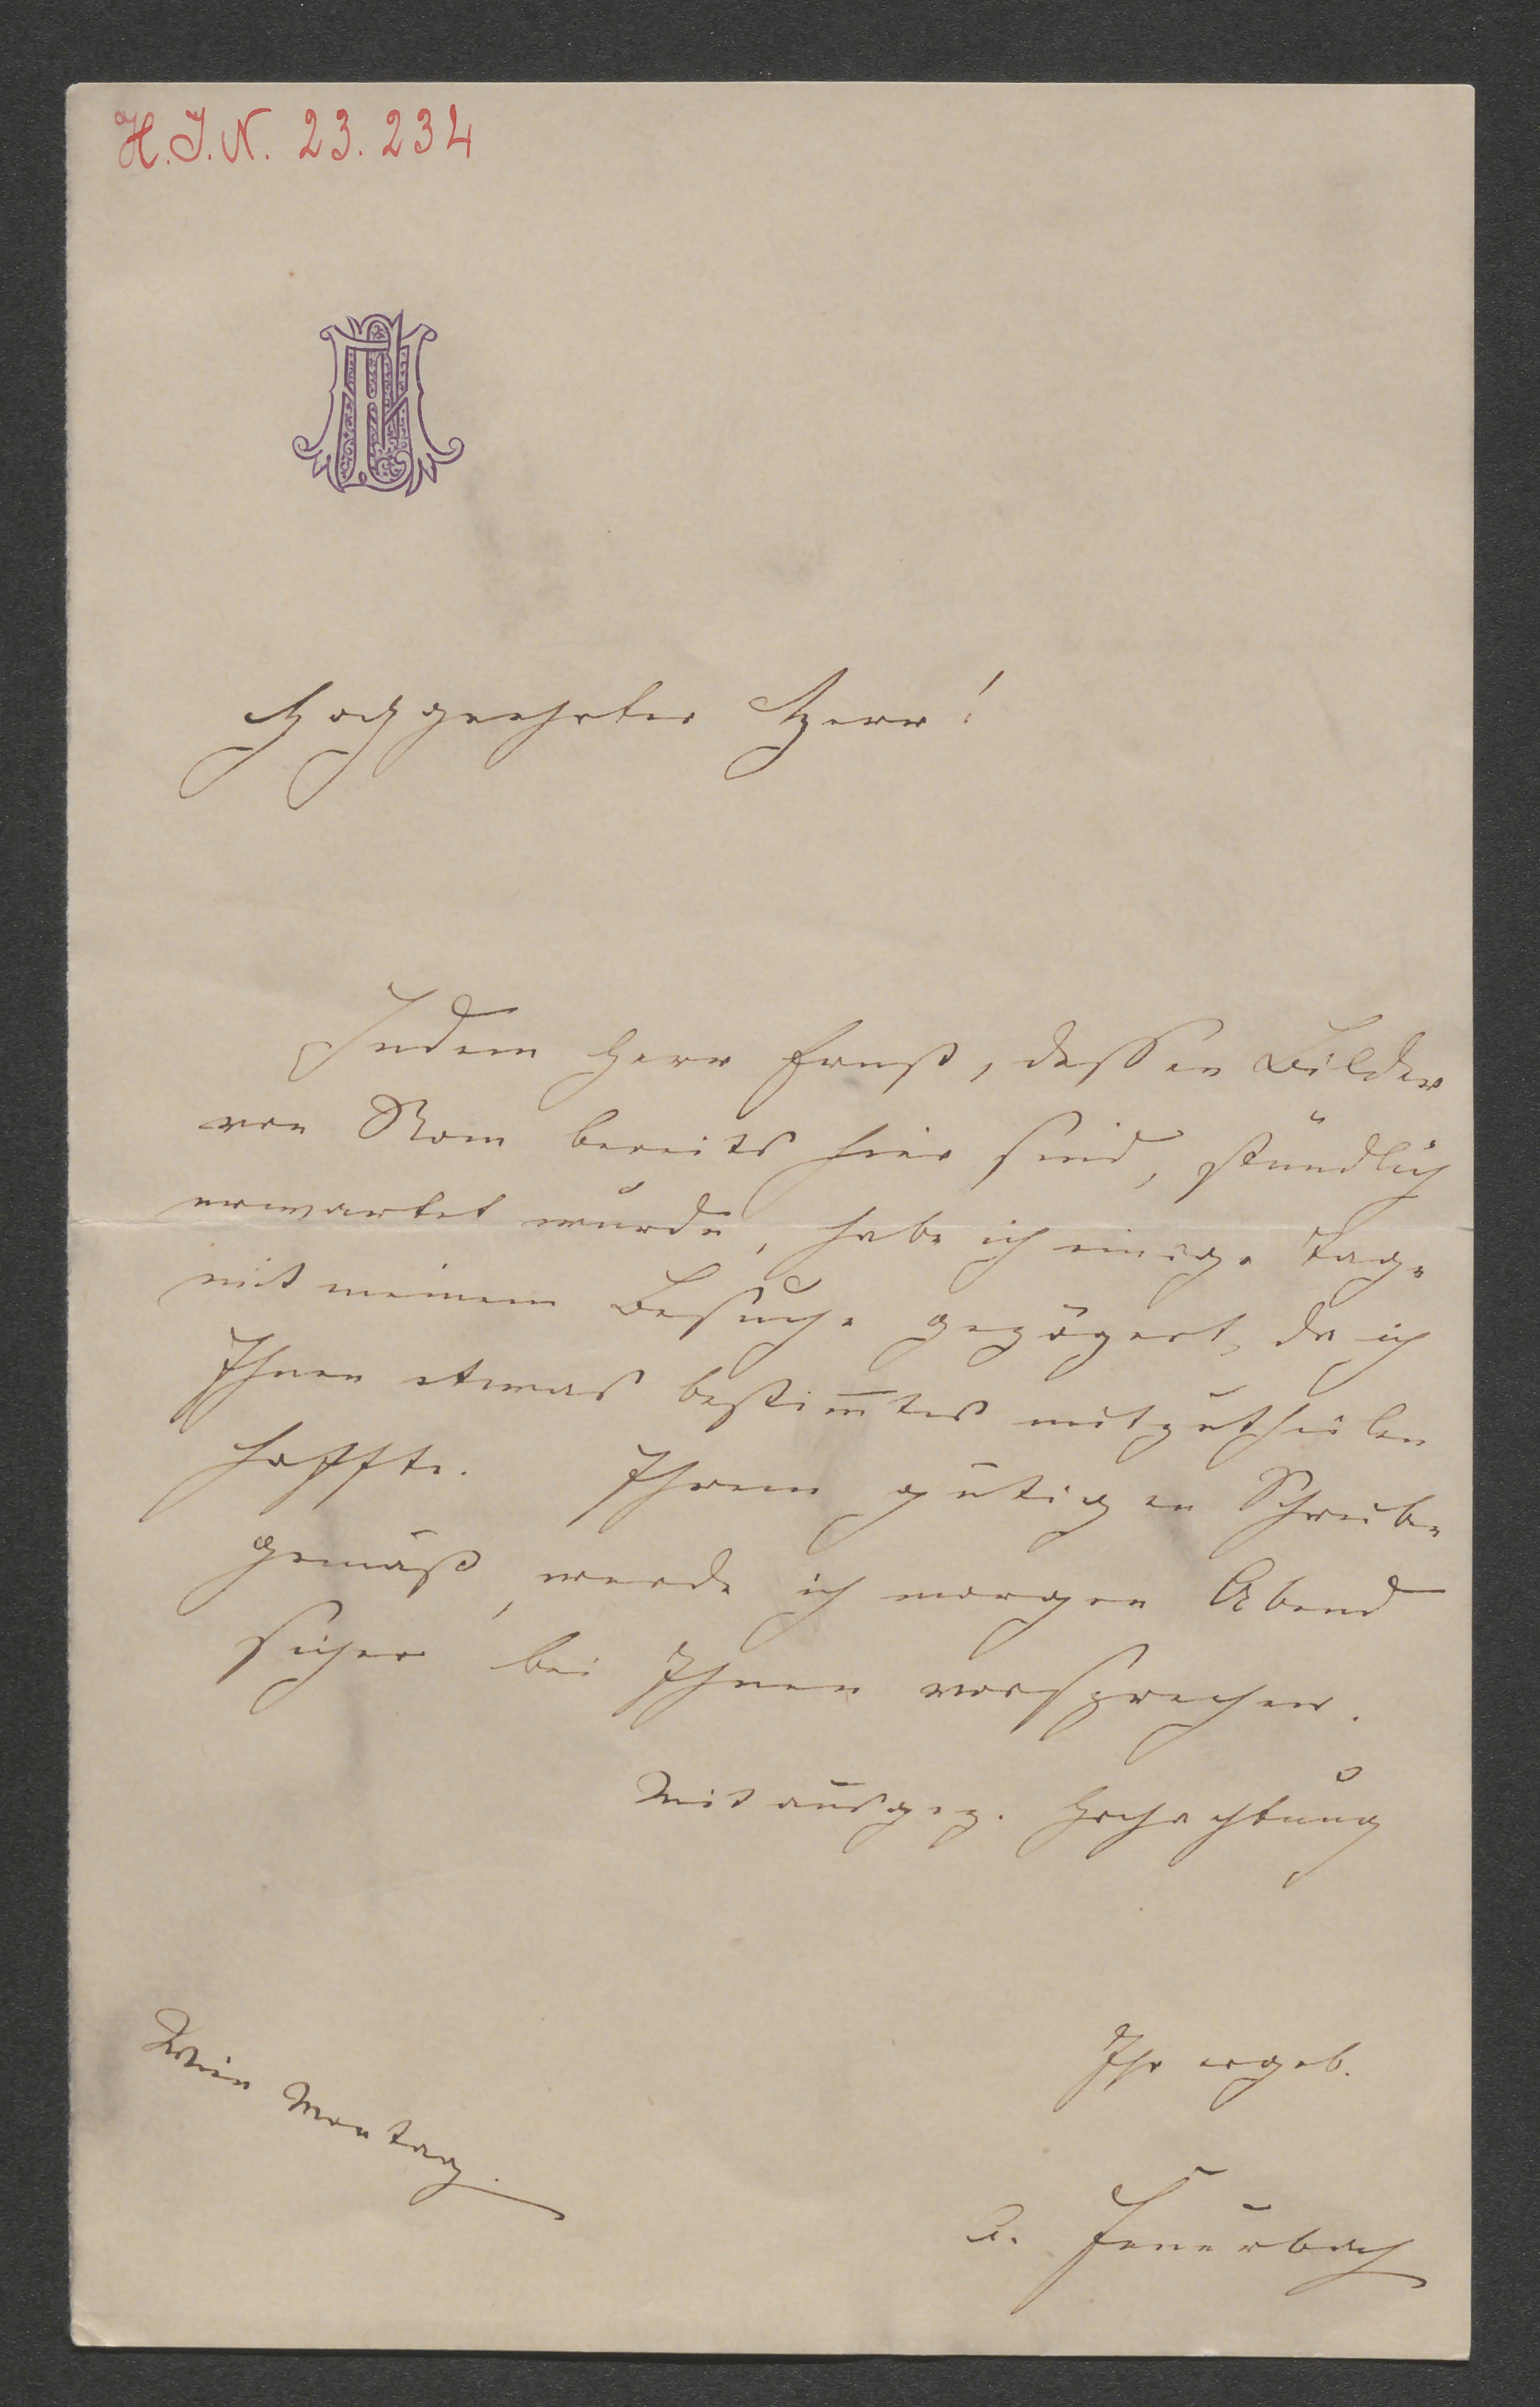 H.I.N. 23.234
Hochgeehrter Herr!
Indem Herr Ernst, dessen Bilder
von Rom bereits hier sind, stündlich
erwartet wurde, habe ich einige Tage
mit meinem Besuche gezögert, da ich
Ihnen etwas bestim̅tes mitzutheilen
hoffte. Ihrem gütigen Schreiben
gemäß, werde ich morgen Abend
sicher bei Ihnen vorsprechen.
Mit ausgez. Hochachtung
Ihr ergeb.
Wien Montag.
A. Feuerbach